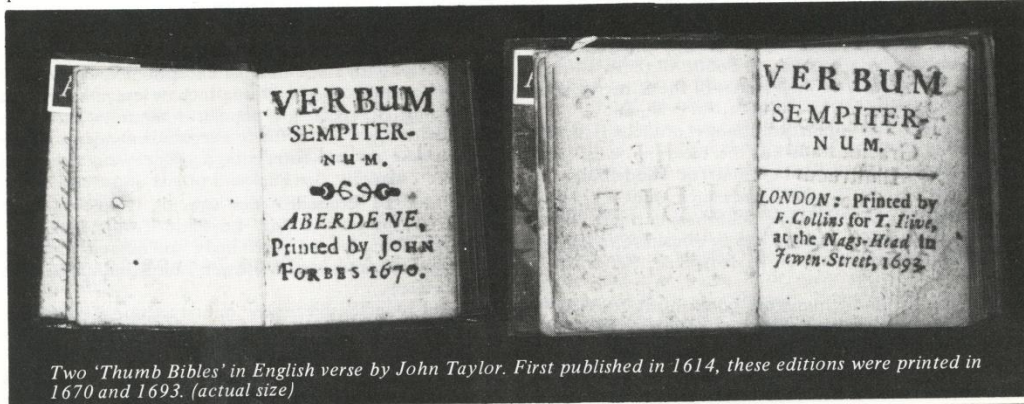 VERBUM
SEMPITER-
NUM.
ABERDENE,
Printed by JOHN
FORBES 1670.
VERBUM
SEMPITER-
NUM.
LONDON: Printed by
F. Collins for T.
at the Nags-Head in
Jewen-Street, 1693.
Two ‘Thumb Bibles’ in English verse by John Taylor. First published in 1614, these editions were printed in
1670 and 1693. (actual size)